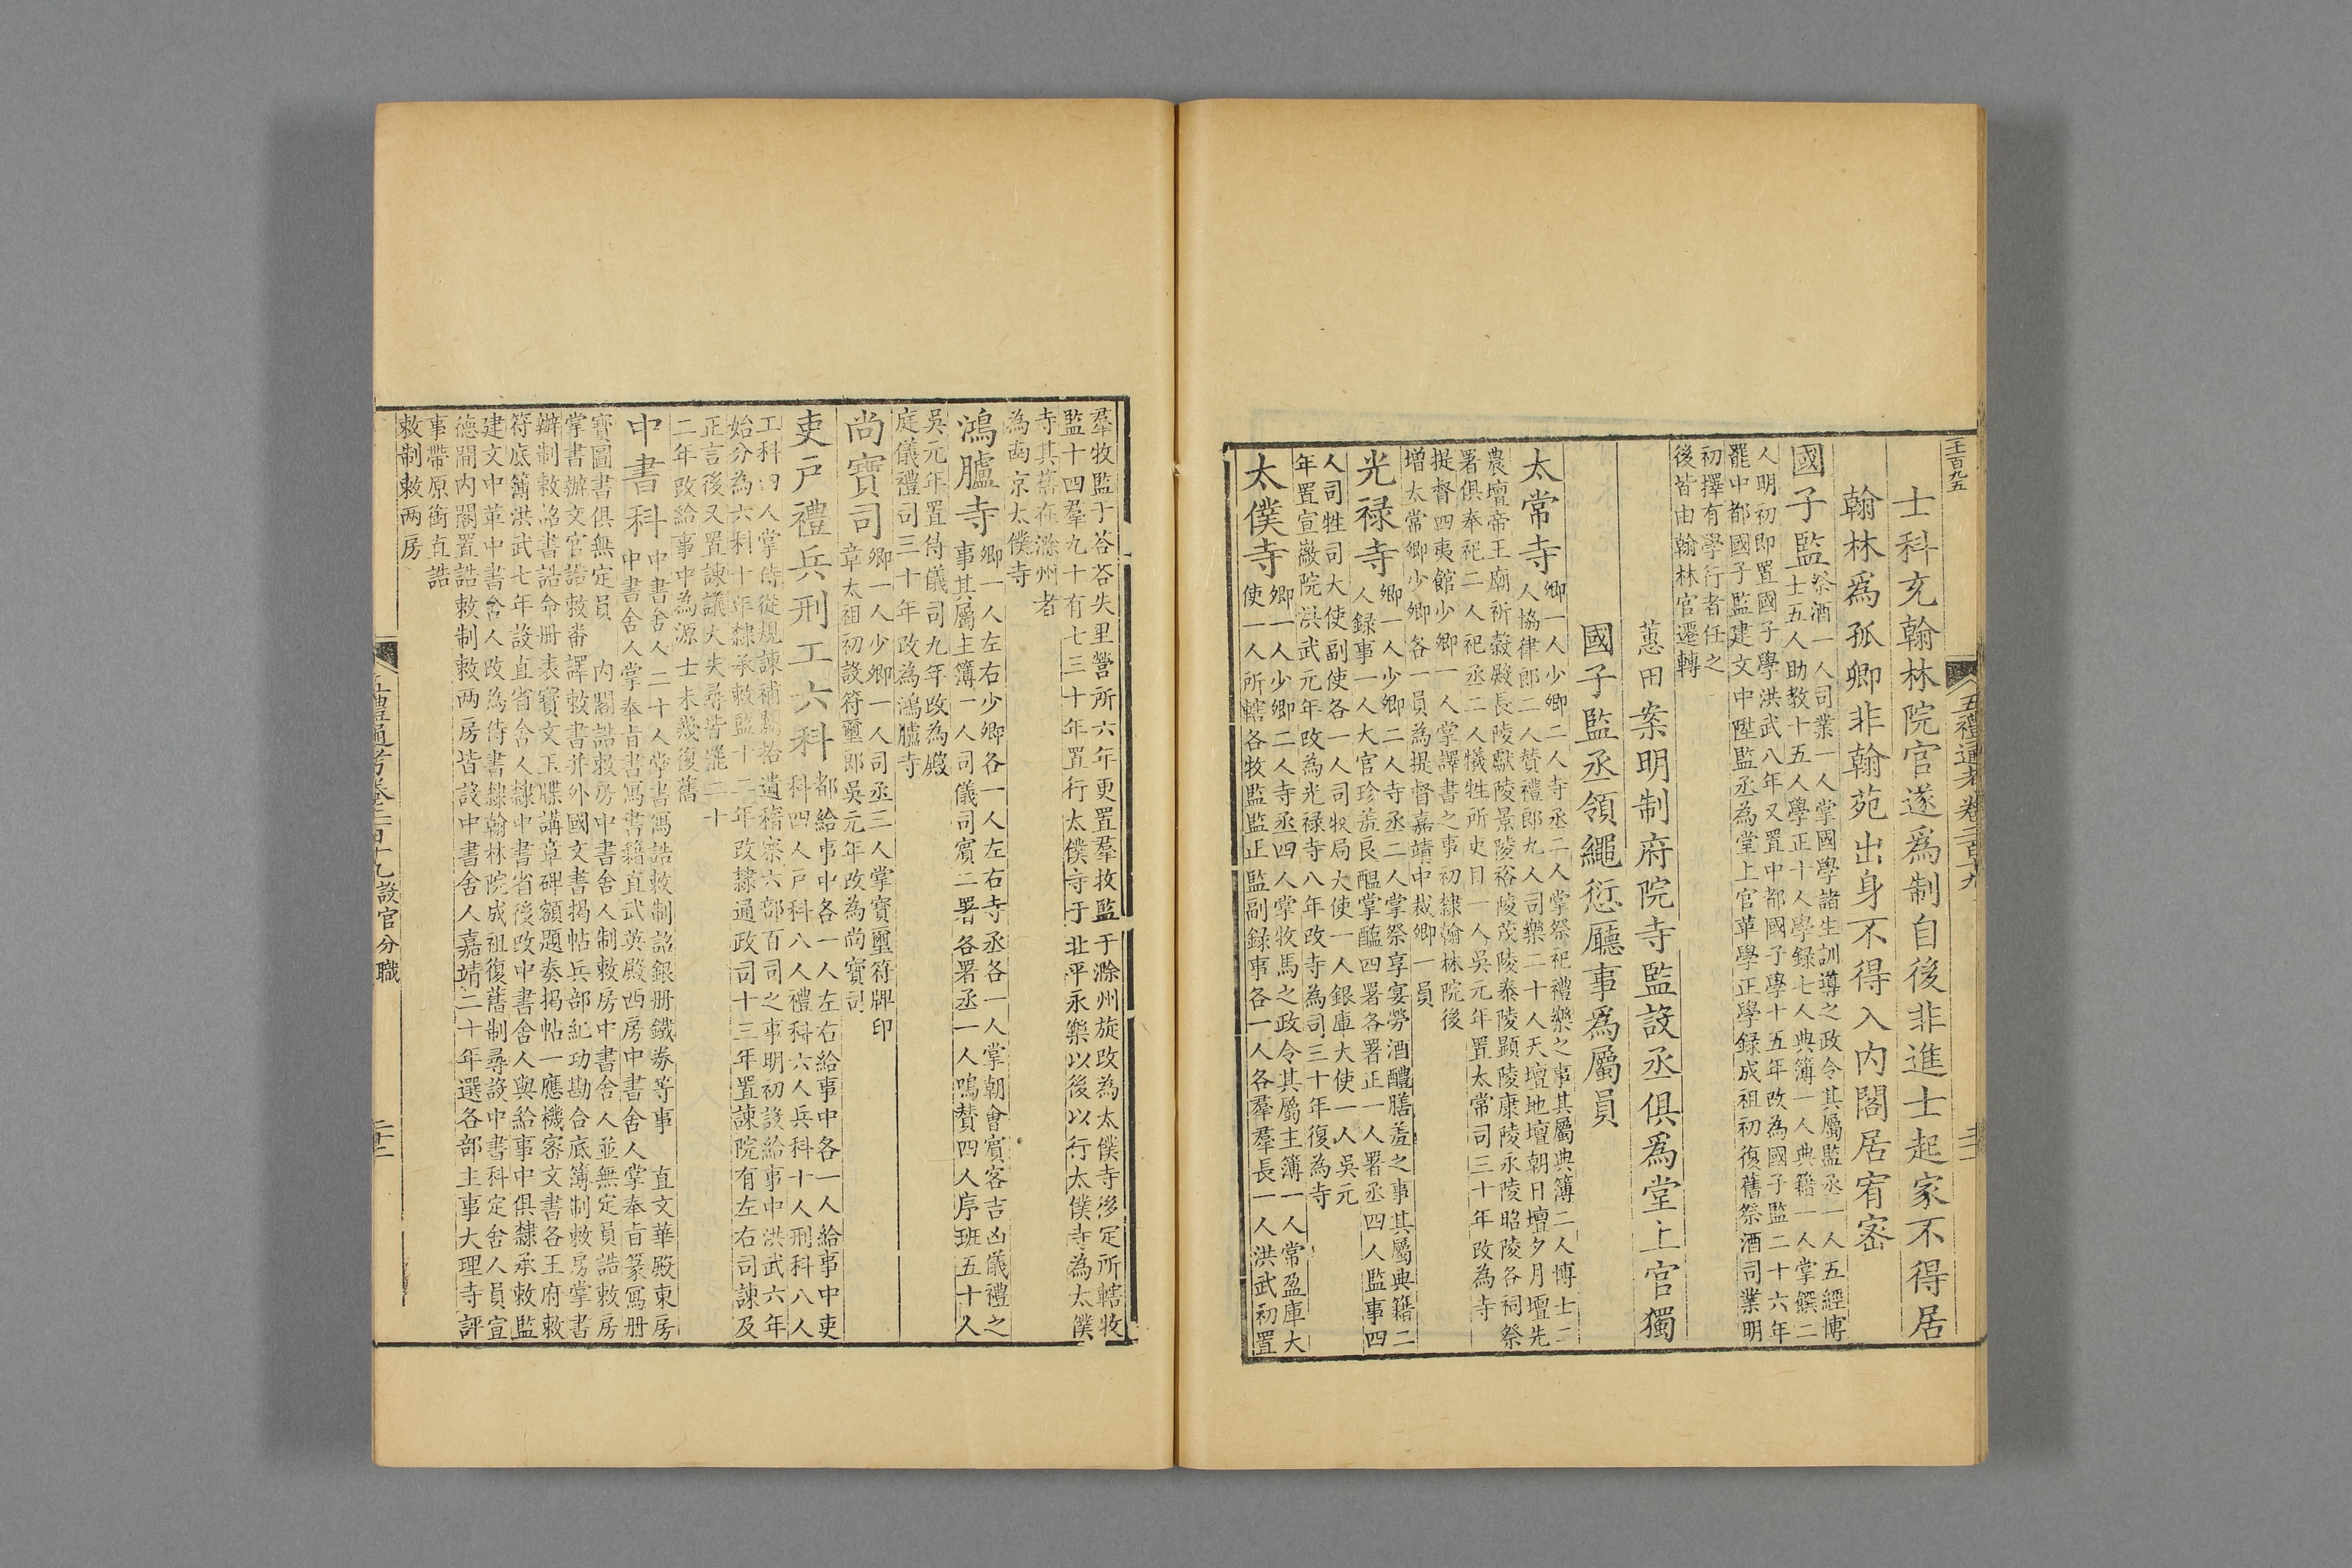 士科充翰林院官遂爲制自後非進士起家不得居
翰林爲孤卿非翰苑出身不得入内閣居宥密
國子監
祭酒一人司業一人掌國學諸生訓導之政令其屬監丞一人五經博
士五人助教十五人學正十人學録七人典簿一人典籍一人掌饌二
人明初即置國子學洪武八年又置中都國子學十五年改為國子監二十六年
罷中都國子監建文中陞監丞為堂上官革學正學録成祖初復舊祭酒司業明
初擇有學行者任之
後皆由翰林官遷轉
蕙田案明制府院寺監設丞俱爲堂上官獨
國子監丞領繩愆廳事爲屬員
太常寺
卿一人少卿二人寺丞二人掌祭祀禮樂之事其屬典簿二人博士二
人協律郎二人賛禮郎九人司樂二十人天壇地壇朝日壇夕月壇先
農壇帝王廟祈穀殿長陵獻陵景陵裕陵茂陵泰陵顯陵康陵永陵昭陵各祠祭
署俱奉祀二人祀丞二人犧牲所吏目一人吳元年置太常司三十年改為寺
提督四夷館少卿一人掌譯書之事初隸翰林院後
增太常卿少卿各一員為提督嘉靖中裁卿一員
光禄寺
卿一人少卿二人寺丞二人掌祭享宴勞酒醴膳羞之事其屬典籍二
人録事一人大官珍羞良醖掌醢四署各署正一人署丞四人監事四
人司牲司大使副使各一人司牧局大使一人銀庫大使一人吳元
年置宣徽院洪武元年改為光禄寺八年改寺為司三十年復為寺
太僕寺
卿一人少卿二人寺丞四人掌牧馬之政令其屬主簿一人常盈庫大
使一人所轄各牧監監正監副録事各一人各羣羣長一人洪武初置
羣牧監于荅荅失里營所六年更置羣牧監于滁州旋改為太僕寺後定所轄牧
監十四羣九十有七三十年置行太僕寺于北平永樂以後以行太僕寺為太僕
寺其舊在滁州者
為南京太僕寺
鴻臚寺
卿一人左右少卿各一人左右寺丞各一人掌朝會賓客吉凶儀禮之
事其屬主簿一人司儀司賓二署各署丞一人鳴賛四人序班五十人
吳元年置侍儀司九年改為殿
庭儀禮司三十年改為鴻臚寺
尚寶司
卿一人少卿一人司丞三人掌寶璽符牌印
章太祖初設符璽郎吳元年改為尚寶司
吏戸禮兵刑工六科
都給事中各一人左右給事中各一人給事中吏
科四人戸科八人禮科六人兵科十人刑科八人
工科四人掌侍從規諫補闕拾遺稽察六部百司之事明初設給事中洪武六年
始分為六科十年隸承敕監十二年改隸通政司十三年置諫院有左右司諫及
正言後又置諫議大夫尋皆罷二十
二年改給事中為源士未幾復舊
中書科
中書舍人二十人掌書寫誥敕制詔銀册鐵券等事　直文華殿東房
中書舍人掌奉旨書寫書籍直武英殿西房中書舍人掌奉旨篆寫册
寶圖書俱無定員　内閣誥敕房中書舍人制敕房中書舍人並無定員誥敕房
掌書辦文官誥敕番譯敕書并外國文書揭帖兵部紀功勘合底簿制敕房掌書
辦制敕詔書誥命册表寶文玉牒講章碑額題奏揭帖一應機密文書各王府敕
符底簿洪武七年設直省舍人隸中書省後改中書舍人與給事中俱隸承敕監
建文中革中書舍人改為侍書隸翰林院成祖復舊制尋設中書科定舍人員宣
德間内閣置誥敕制敕两房皆設中書舍人嘉靖二十年選各部主事大理寺評
事帶原銜直誥
敕制敕两房
五禮通考卷二百十九設官分職